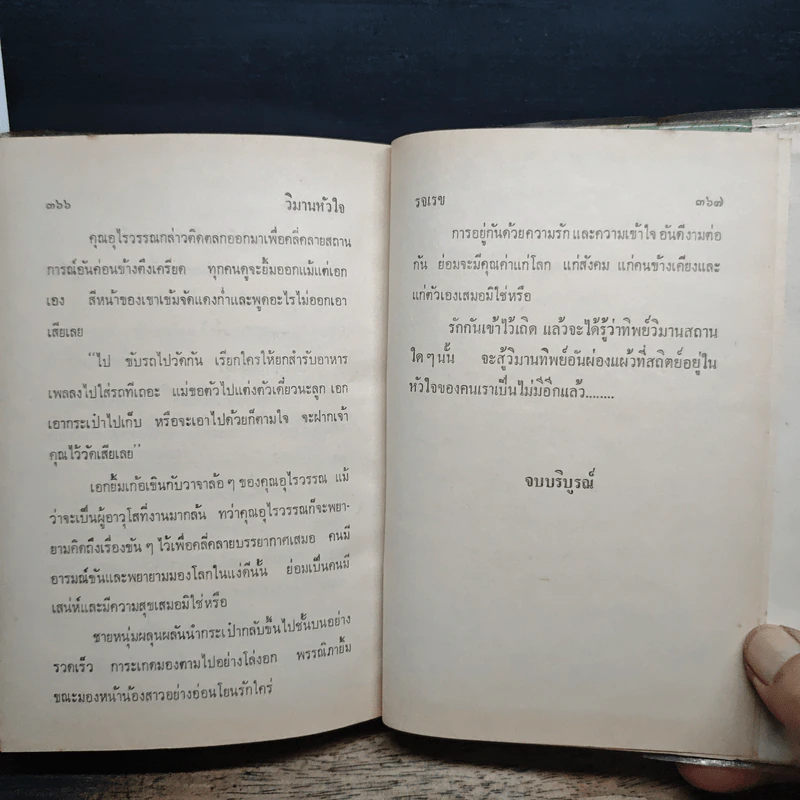 ๓๖๖ วิมานหัวใจ
คุณอุไรวรรณกล่าวติดตลกออกมาเพื่อคลี่คลายสถาน
การณ์อันค่อนข้างตึงเครียด ทุกคนดูจะยิ้มออกแม้แต่เอก
เอง สีหน้าของเขาเข้มจัดแดงก่ำและพูดอะไรไม่ออกเอา
เสียเลย
“ไป ขับรถไปวัดกัน เรียกใครให้ยกสำรับอาหาร
เพลงลงไปใส่รถทีเถอะ แม่ขอตัวไปแต่งตัวเดี๋ยวนะลูก เอก
เอากระเป๋าไปเก็บ หรือจะเอาไปด้วยก็ตามใจ จะฝากเจ้า
คุณไว้วัดเสียเลย”
เอกยิ้มเก้อเขินกับวาจาล้อๆ ของคุณอุไรวรรณ แม้
ว่าจะเป็นผู้อาวุโสที่งานมากล้น ทว่าคุณอุไรวรรณก็จะพยา-
ยามคิดถึงเรื่องขันๆ ไว้เพื่อคลี่คลายบรรยากาศเสมอ คนมี
อารมณ์ขันและพยายามมองโลกในแง่ดีนั้น ย่อมเป็นคนมี
เสน่ห์และมีความสุขเสมอมิใช่หรือ
ชายหนุ่มผลุนผลันนำกระเป๋ากลับขึ้นไปชั้นบนอย่าง
รวดเร็ว การะเกดมองตามไปอย่างโล่งอก พรรณิภายิ้ม
ขณะมองหน้าน้องสาวอย่างอ่อนโยนรักใคร่
รจเรข ๓๖๗
การอยู่กันด้วยความรัก และความเข้าใจ อันดีงามต่อ
กัน ย่อมจะมีคุณค่าแก่โลก แก่สังคม แก่คนข้างเคียงและ
แก่ตัวเองเสมอมิใช่หรือ
รักกันเข้าไว้เถิด แล้วจะได้รู้ว่าทิพย์วิมานสถาน
ใดๆ นั้น จะสู้วิมานทิพย์อันผ่องแผ้วที่สถิตย์อยู่ใน
หัวใจของคนเราเป็นไม่มีอีกแล้ว........
จบบริบูรณ์